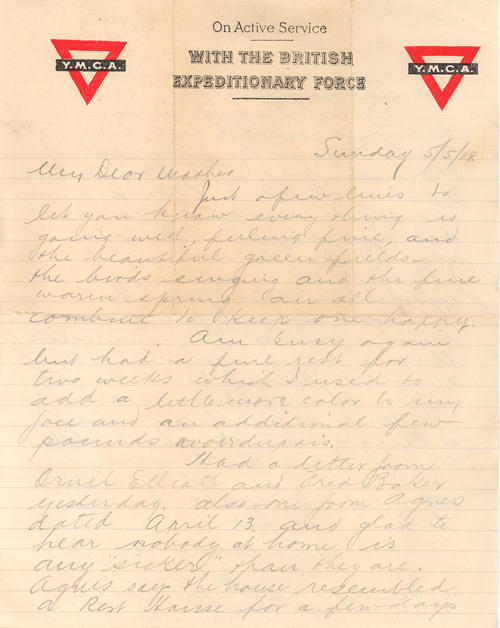 On Active Service
WITH THE BRITISH
EXPEDITIONARY FORCE
Y.M.C.A.
Y.M.C.A.
Sunday 5/5/18
My Dear Mother
Just a few lines to
let you know every thing is
going well, feeling fine, and
the beautiful green fields -
the birds singing and the fine
warm spring air all
combine to keep one happy.
Am busy again
but had a fine rest for
two weeks which I used to
add a little more color to my
face and an additional few
pounds avoirdupois.
Had a letter from
Orvil Elliott and Fred Baker
yesterday. also one from Agnes
dated April 13, and glad to
hear nobody at home is
any "sicker" than they are.
Agnes says the house resembled
a Rest House for a few days